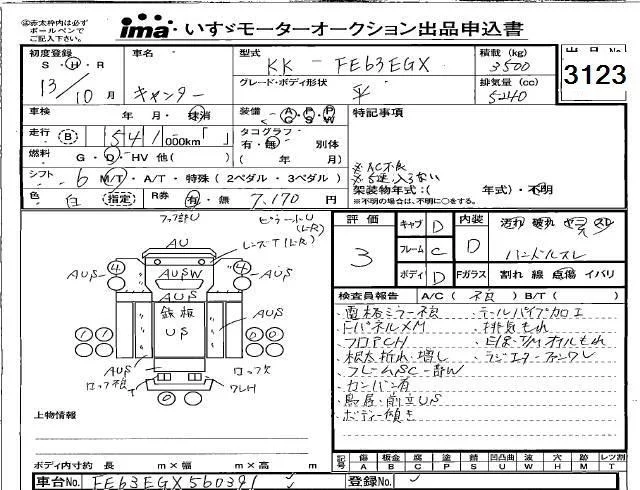 ㊟赤太枠内は必ず
ボールペンで
ご記入下さい。
ima いすゞモーターオークション出品申込書
初度登録 車名 型式 積載 (kg) 出品No
S・H・R KK - FE63EGX 3500 3123
13/10月 キャンター グレード・ボディ形状 平 排気量 (cc) 5240
車検 年・月・抹消 装備 A P P G S W 特記事項
走行 B 541,000km「 」 タコグラフ 有・無 別体
燃料 G・D・HV 他( ) ( 年 月)
※AC不良
※5速入らない
シフト 6 M/T・A/T・特殊 (2ペダル・3ペダル) 架装物年式:( 年式)・不明
※不明の場合は、不明に○をする。
色 白 指定 R券 有・無 7,170円
評価 3 キャブ D 内装 D 汚れ 破れ ヤニ スレ
フレーム C ハンドルスレ
ボディ D Fガラス 割れ 線 点傷 イバリ
AU レンズT(L・R)
AUS 4 AUSW 4 AUS
AUS
鉄板
US
AUS
検査員報告 A/C ( 不良 ) B/T ( )
・電格ミラー不良 ・テールパイプ加工
・FパネルXM ・排気もれ
・フロアCH ・E/g・T/Mオイルもれ
・根太折れ・増し
・フレームSC一部W
・カンバン有
・鳥居・前立US
・ボディー傾き
上物情報
ボディ内寸約 長 m×幅 m×高 m
記号 傷 凹 腐 塗 錆 凹凸曲 波 穴 跡 レツ割
A B C P S U W H M T
車台No. FE63EGX560391 登録No.